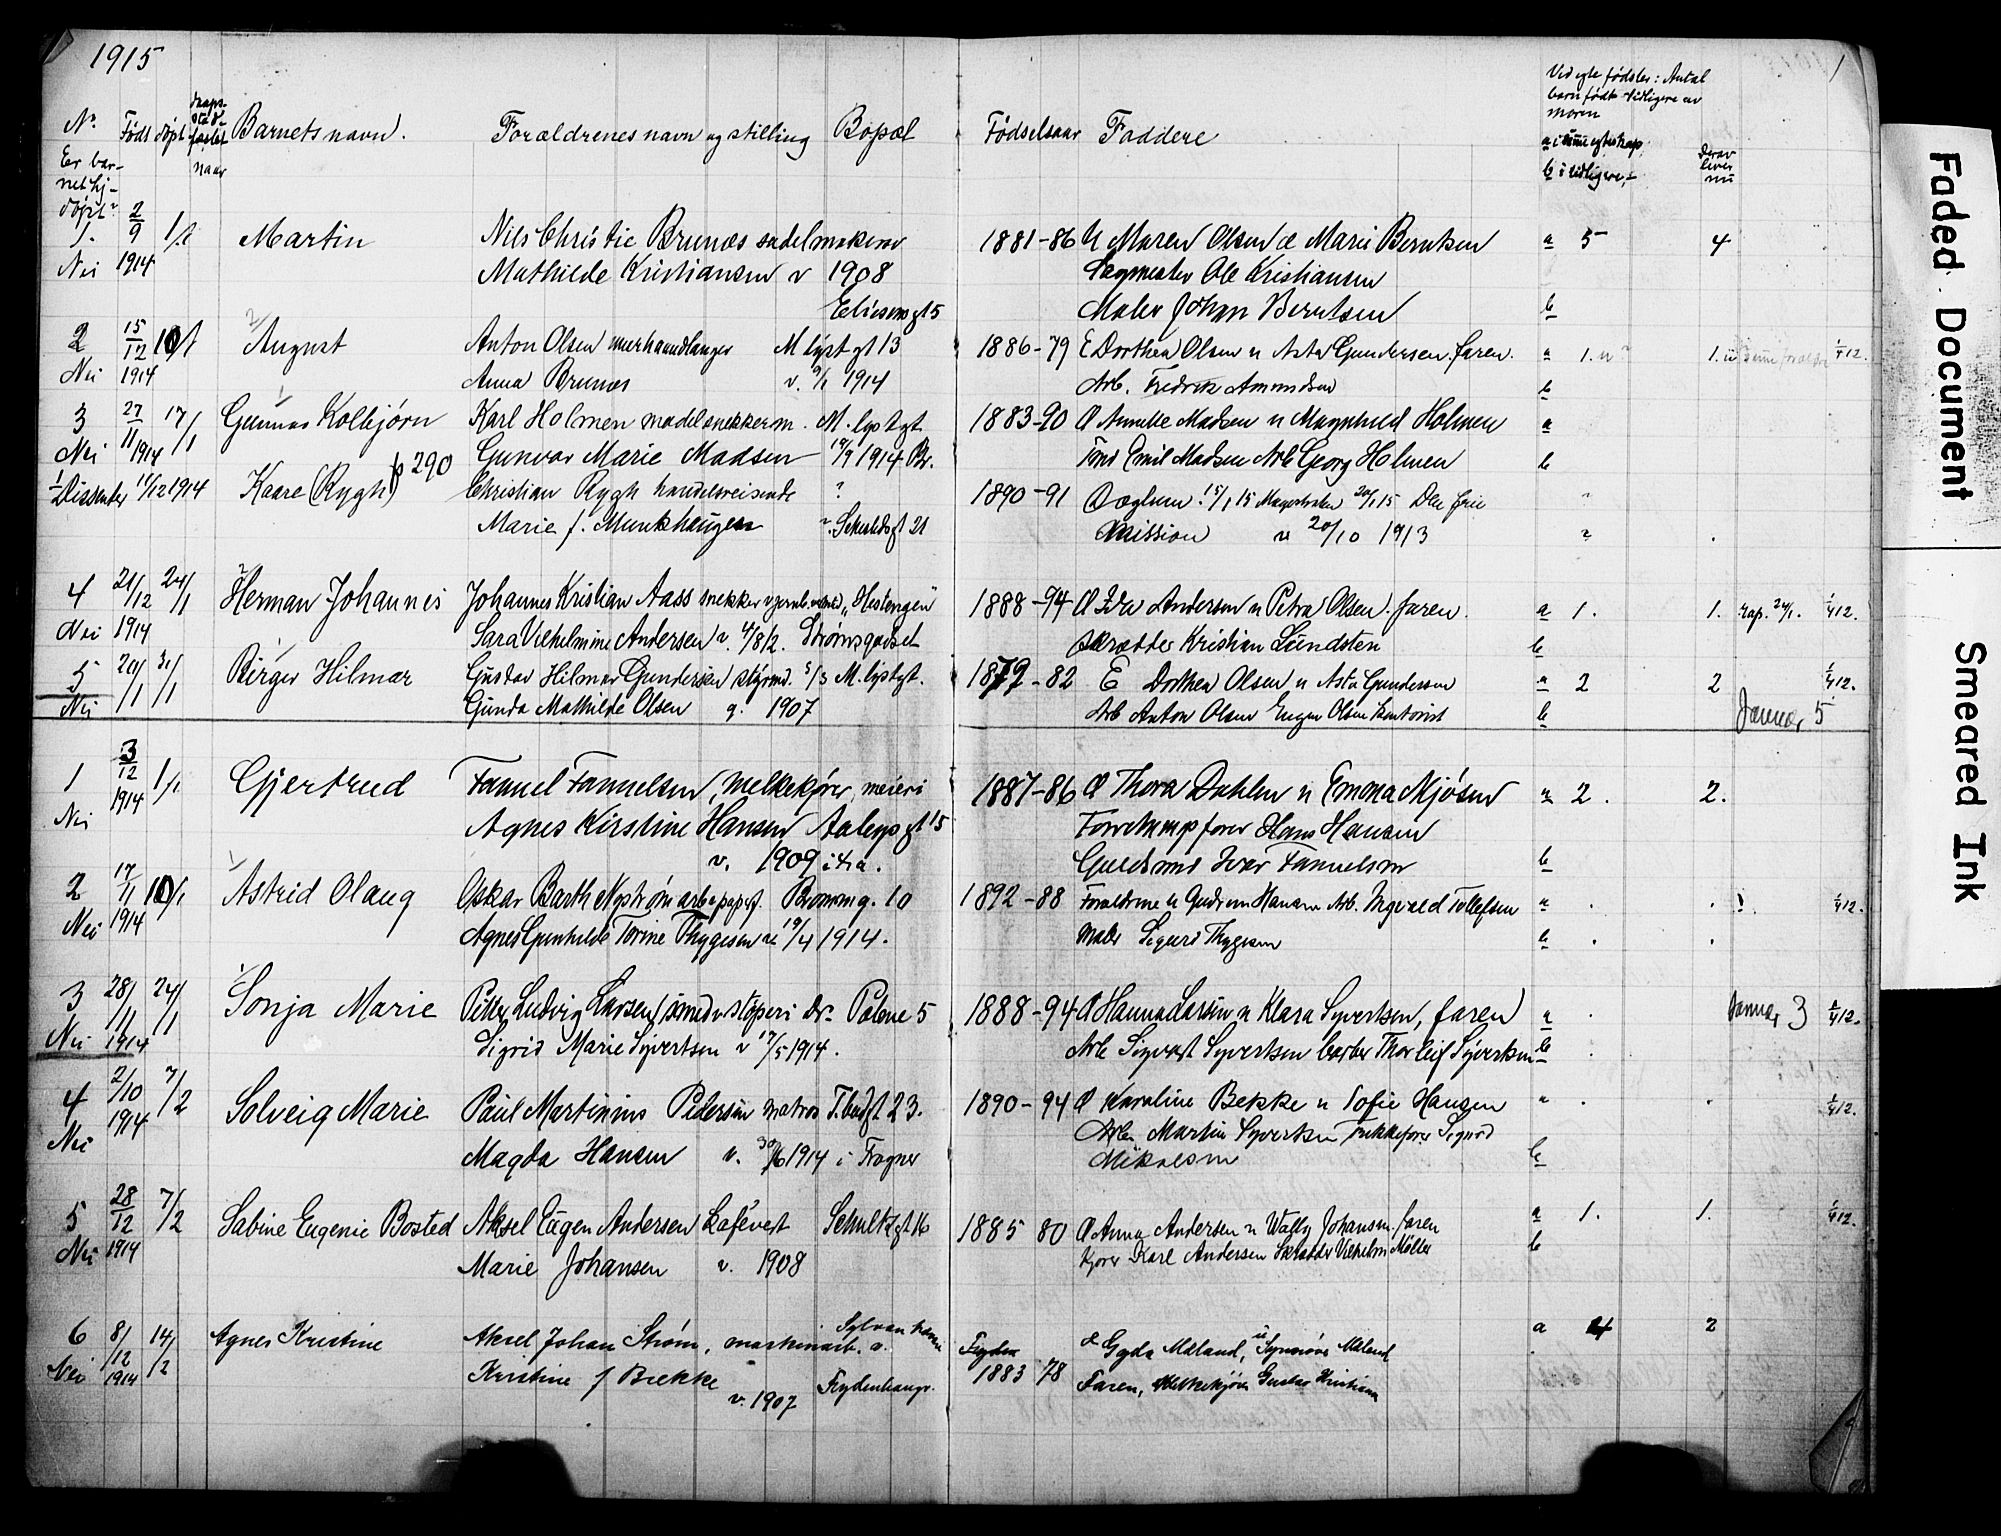 1915
1
No. Født døpt Barnets navn. Forældrenes navn og stilling Bopæl Fødselsaar Faddere
Vid egte fødsler: Antal
barn født tidligere av
moren
Er bar-
net hj-
døpt?
naar
a i egteskap
b i tidligere -
Derav
lever
nu
1. 2/9 1/1 Martin Nils Christie Brunæs sadelmakersv 1881-86 Maren Olsen Marie Berntsen a 5 4
Nei 1914 Mathilde Kristiansen v 1908 Ole Kristiansen
Eliesensgt 5 Maler Johan Berntsen b
2 15/12 10/1 August Anton Olsen murhaandlanger M lystgt 13 1886-79 E Dorthea Olsen u Asta Gundersen. faren. a 1. 1. 1/4 12.
Nei 1914 Anna Brunæs v. 1914 Arb. Fredrik Amundsen b
3 27/11 17/1 Gunnar Kolbjørn Karl Holmen modelsnekkerm. M. lystgt 1883-90 Annette Madsen u Magnhild Holmen a
Nei 1914 Gunvor Marie Madsen 1914 Br. Emil Madsen Arb Georg Holmen b
Dissenter 1914 Kaare (Rygh) p 290 Christian Rygh handelsreisende ? 1890-91 15/1 15 Magistraten 20/1 15 Den frie
Marie f. Munkhaugen Schultzgt 21 Mission v 20/10 1913
4 21/12 24/1 Herman Johannes Johannes Kristian Aass snekker v jernb. "Hestengen" 1888-94 Ida Andersen u Petra Olsen. faren. a 1. 1. rap. 24/1. 1/4 12.
Nei 1914 Sara Vilhelmine Andersen v. 4/8 12. Strømsgodset skrædder Kristian Lundsten b
5 20/1 31/1 Birger Hilmar Gustav Hilmar Gundersen styrmd. 5/3 M. lystgt. 1879-82 E Dorthea Olsen u Asta Gundersen a 2 2 1/4 12.
Nei Gunda Mathilde Olsen g. 1907 Arb Anton Olsen Eugen Olsen kontorist b Januar 5
1 3/12 1/1 Gjertrud Fannel Fannelsen, melkekjører, meieri 1887-86 Thora Dahlen u Emma Mjøsen a 2. 2.
Nei 1914 Agnes Kirstine Hansen Aaleynsgt 15 Hans Hansen
v. 1909 Guldsmd Ivar Fannelsen b
2 17/11 10/1 Astrid Olaug Oskar Barth Nystrøm arb papirf. 10 1892-88 Forældrene u Gudrun Hansen Arb. Ingvald Tollefsen a 1/4 12.
Nei 1914 Agnes Gunhilde Torine Thygesen v 19/4 1914. Maler Sigurd Thygesen b
3 28/11 24/1 Sonja Marie Petter Ludvig Larsen smed v støperi Dr. Palme 5 1888-94 Hanna Larsen u Klara Syvertsen, faren a Januar 3 1/4 12.
Nei 1914 Sigrid Marie Syvertsen v 17/5 1914. Arb Sigvart Syvertsen barber Thorleif Syvertsen b
4 2/10 7/2 Solveig Marie Paul Martinius Pedersen matros T. budgt 23. 1890-94 Karoline Bekke u Sofie Hansen a 1/4 12.
Nei 1914 Magda Hansen v. 1914 i Frogner Arb. Martin Syvertsen Sigurd
Mikalsen b
5 28/12 7/2 Sabine Eugenie Bosted Aksel Eugen Andersen kafévert Schultzgt 16 1885 80 Anna Andersen u Wally Johansen. faren a 1. 1. 1/4 12.
Nei 1914 Marie Johansen v. 1908 Kjører Karl Andersen Skrædder Vilhelm Møller b
6 8/12 14/2 Agnes Kristine Aksel Johan Strøm, maskinarb. Gyda Mæland, Synnøve Mæland a 4 2
Nei 1914 Kristine f Brekke 1883 78 Faren, melkekjører Gustav Kristiansen
v. 1907 Frydenhaugv.
Faded Document
Smeared Ink